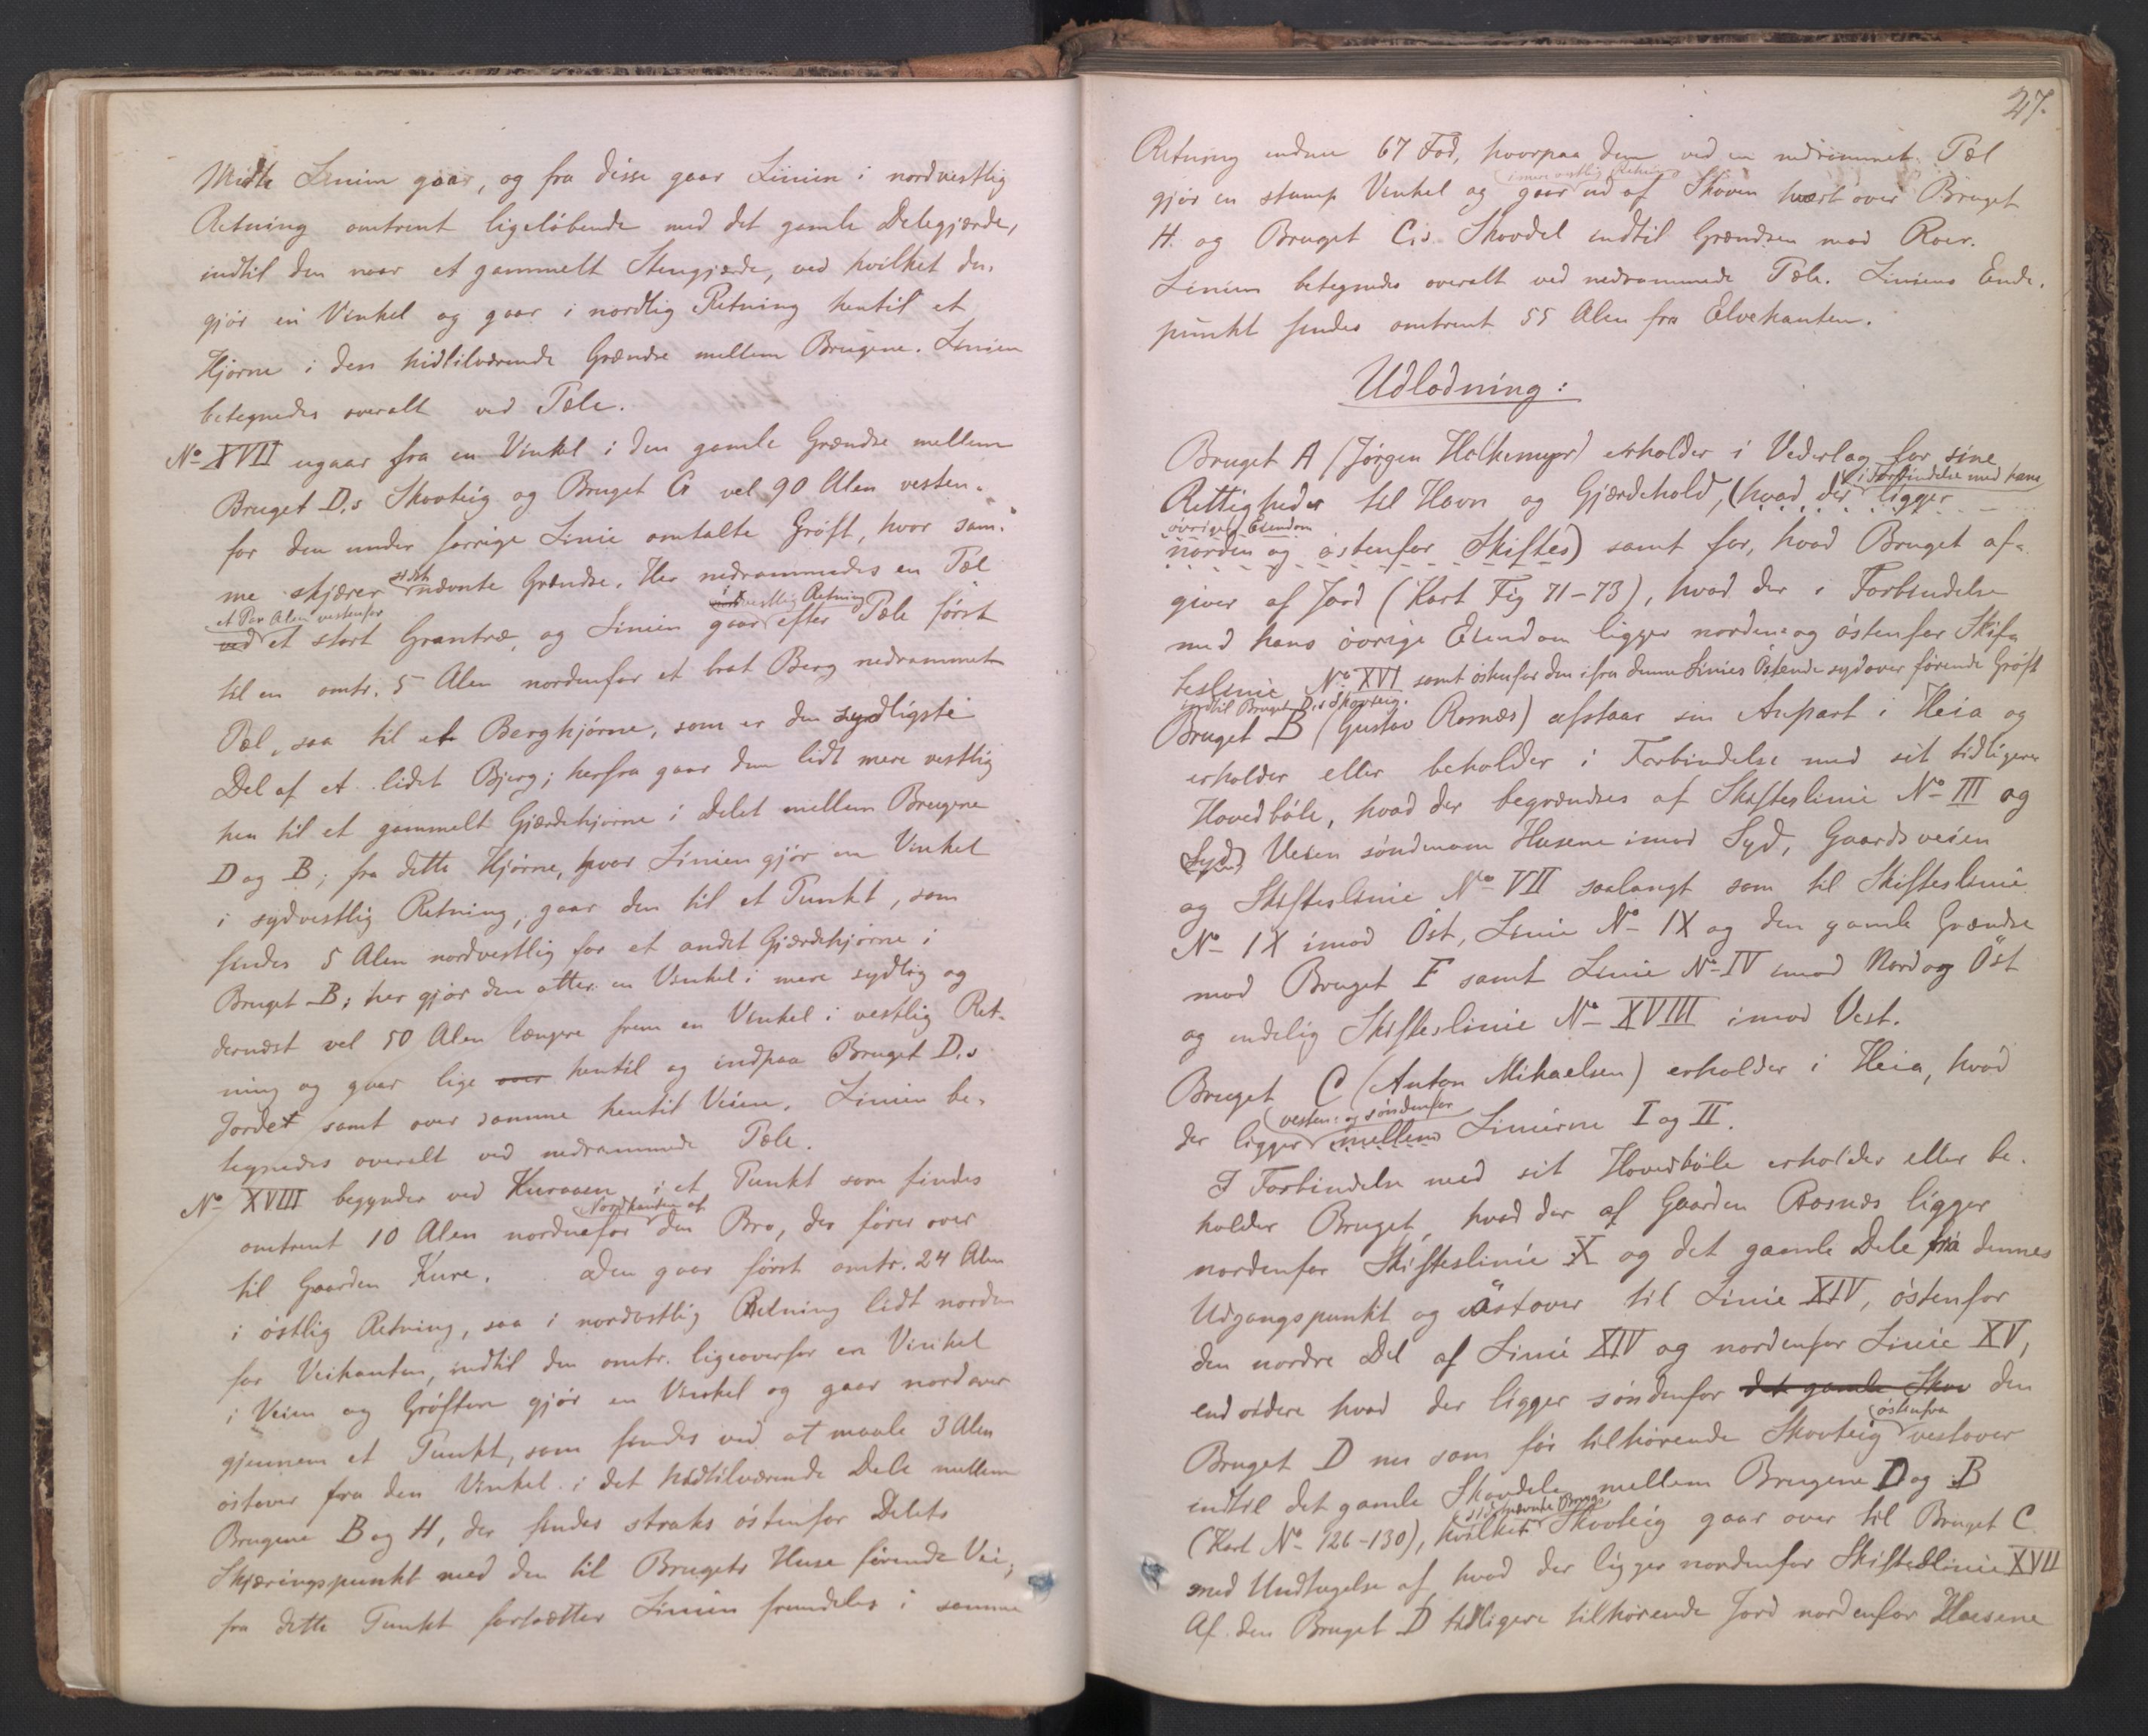 Midte Linien gaar, og fra disse gaar Linien i nordvestlig
Retning omtrent ligeløbende med det gamle Delegjærde,
indtil den naar et gammelt Stengjærde, ved hvilket den
gjør en Vinkel og gaar i nordlig Retning hentil et
Hjørne i den hidtilværende Grændse mellem Brugene. Linien
betegnedes overalt ved Pæle.
No XVII ugaar fra en Vinkel i den gamle Grændse mellem
Bruget D.s Skovteig og Bruget G vel 90 Alen vesten-
for den under forrige Linie omtalte Grøft, hvor sam-
me skjærer sidstnævnte Grændse. Her nedrammedes en Pæl
et Par Alen vestenfor
ved et stort Grantræ, og Linien gaar nordvestlig Retning efter Pæle først
til en omtr. 5 Alen nordenfor et brat Berg nedrammet
Pæl, saa til et Berghjørne, som er den sydligste
Del af et lidet Bjerg; herfra gaar den lidt mere vestlig
hen til et gammelt Gjærdehjørne i Delet mellem Brugene
D og B; fra dette Hjørne, hvor Linien gjør en Vinkel
i sydvestlig Retning, gaar den til et Punkt, som
findes 5 Alen nordvestlig for et andet Gjærdehjørne i
Bruget B; her gjør den atter en Vinkel i mere sydlig og
dernæst vel 50 Alen længere frem en Vinkel i vestlig Ret-
ning og gaar lige over hentil og indpaa Bruget D.s
Jordet samt over samme hentil Veien. Linien be-
tegnedes overalt ved nedrammede Pæle.
No XVIII begynder ved Kureaaen i et Punkt som findes
omtrent 10 Alen nordenfor Nordkanten af den Bro, der fører over
til Gaarden Kure. Den gaar først omtr. 24 Alen
i østlig Retning, saa i nordøstlig Retning lidt norden
for Veikanten, indtil den omtr. ligeoverfor en Vinkel
i Veien og Grøften gjør en Vinkel og gaar nordover
gjennem et Punkt, som findes ved at maale 3 Alen
østover fra den Vinkel i det hidtilværende Dele mellem
Brugene B og H, der findes straks østenfor Delets
Skjæringspunkt med den til Brugets Huse førende Vei;
fra dette Punkt fortsætter Linien fremdeles i samme
27.
Retning endnu 67 Fod, hvorpaa den ved en nedrammet Pæl
gjør en stump Vinkel og gaar i mere østlig Retning ud af Skoven tvært over Bruget
H. og Bruget C.s Skovdel indtil Grændsen mod Roer.
Linien betegnedes overalt ved nedrammede Pæle. Liniens Ende-
punkt findes omtrent 55 Alen fra Elvekanten.
Udlodning:
Bruget A (Jørgen Halkemyr) erholder i Vederlag for sine
Rettigheder til Havn og Gjærdehold, (hvad der i Forbindelse med hans ligger
øvrige Eiendom
norden og østenfor Skiftes) samt for, hvad Bruget af-
giver af Jord (Kart Fig 71-73), hvad der i Forbindelse
med hans øvrige Eiendom ligger norden- og østenfor Skif-
teslinie No XVI samt østenfor den ifra denne Linies Østende sydover førende Grøft
indtil Bruget D.s Skovteig.
Bruget B (Gustav Rosnæs) afstaar sin Anpart i Heia og
erholder eller beholder i Forbindelse med sit tidligere
Hovedbøle, hvad der begrændses af Skifteslinie No III og
(Syd) Veien søndenom Husene imod Syd, Gaardsveien
og Skifteslinie No VII saalangt som til Skifteslinie
No IX imod Øst, Linie No IX og den gamle Grændse
mod Bruget F samt Linie No IV imod Nord og Øst
og endelig Skifteslinie No XVIII imod Vest.
Bruget C (Anton Mikaelsen) erholder i Heia, hvad
der ligger vesten- og søndenfor mellem Linierne I og II.
I Forbindelse med sit Hovedbøle erholder eller be-
holder Bruget, hvad der af Gaarden Rosnæs ligger
nordenfor Skifteslinie X og det gamle Dele fra dennes
Udgangspunkt og østover til Linie XIV, østenfor
den nordre Del af Linie XIV og nordenfor Linie XV,
endvidere hvad der ligger søndenfor det gamle Skov den
Bruget D nu som før tilhørende Skovteig østenfra vestover
indtil det gamle Skovdele mellem Brugene D og B
(Kart No 126-130), hvilket sidstnævnte Brugs Skovteig gaar over til Bruget C
med Undtagelse af, hvad der ligger nordenfor Skifteslinie XVII
Af den Bruget D tidligere tilhørende Jord nordenfor Husene